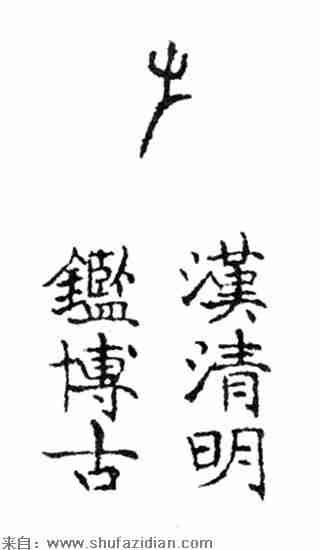 漢清明
鑑博古
来自：www.shufazidian.com